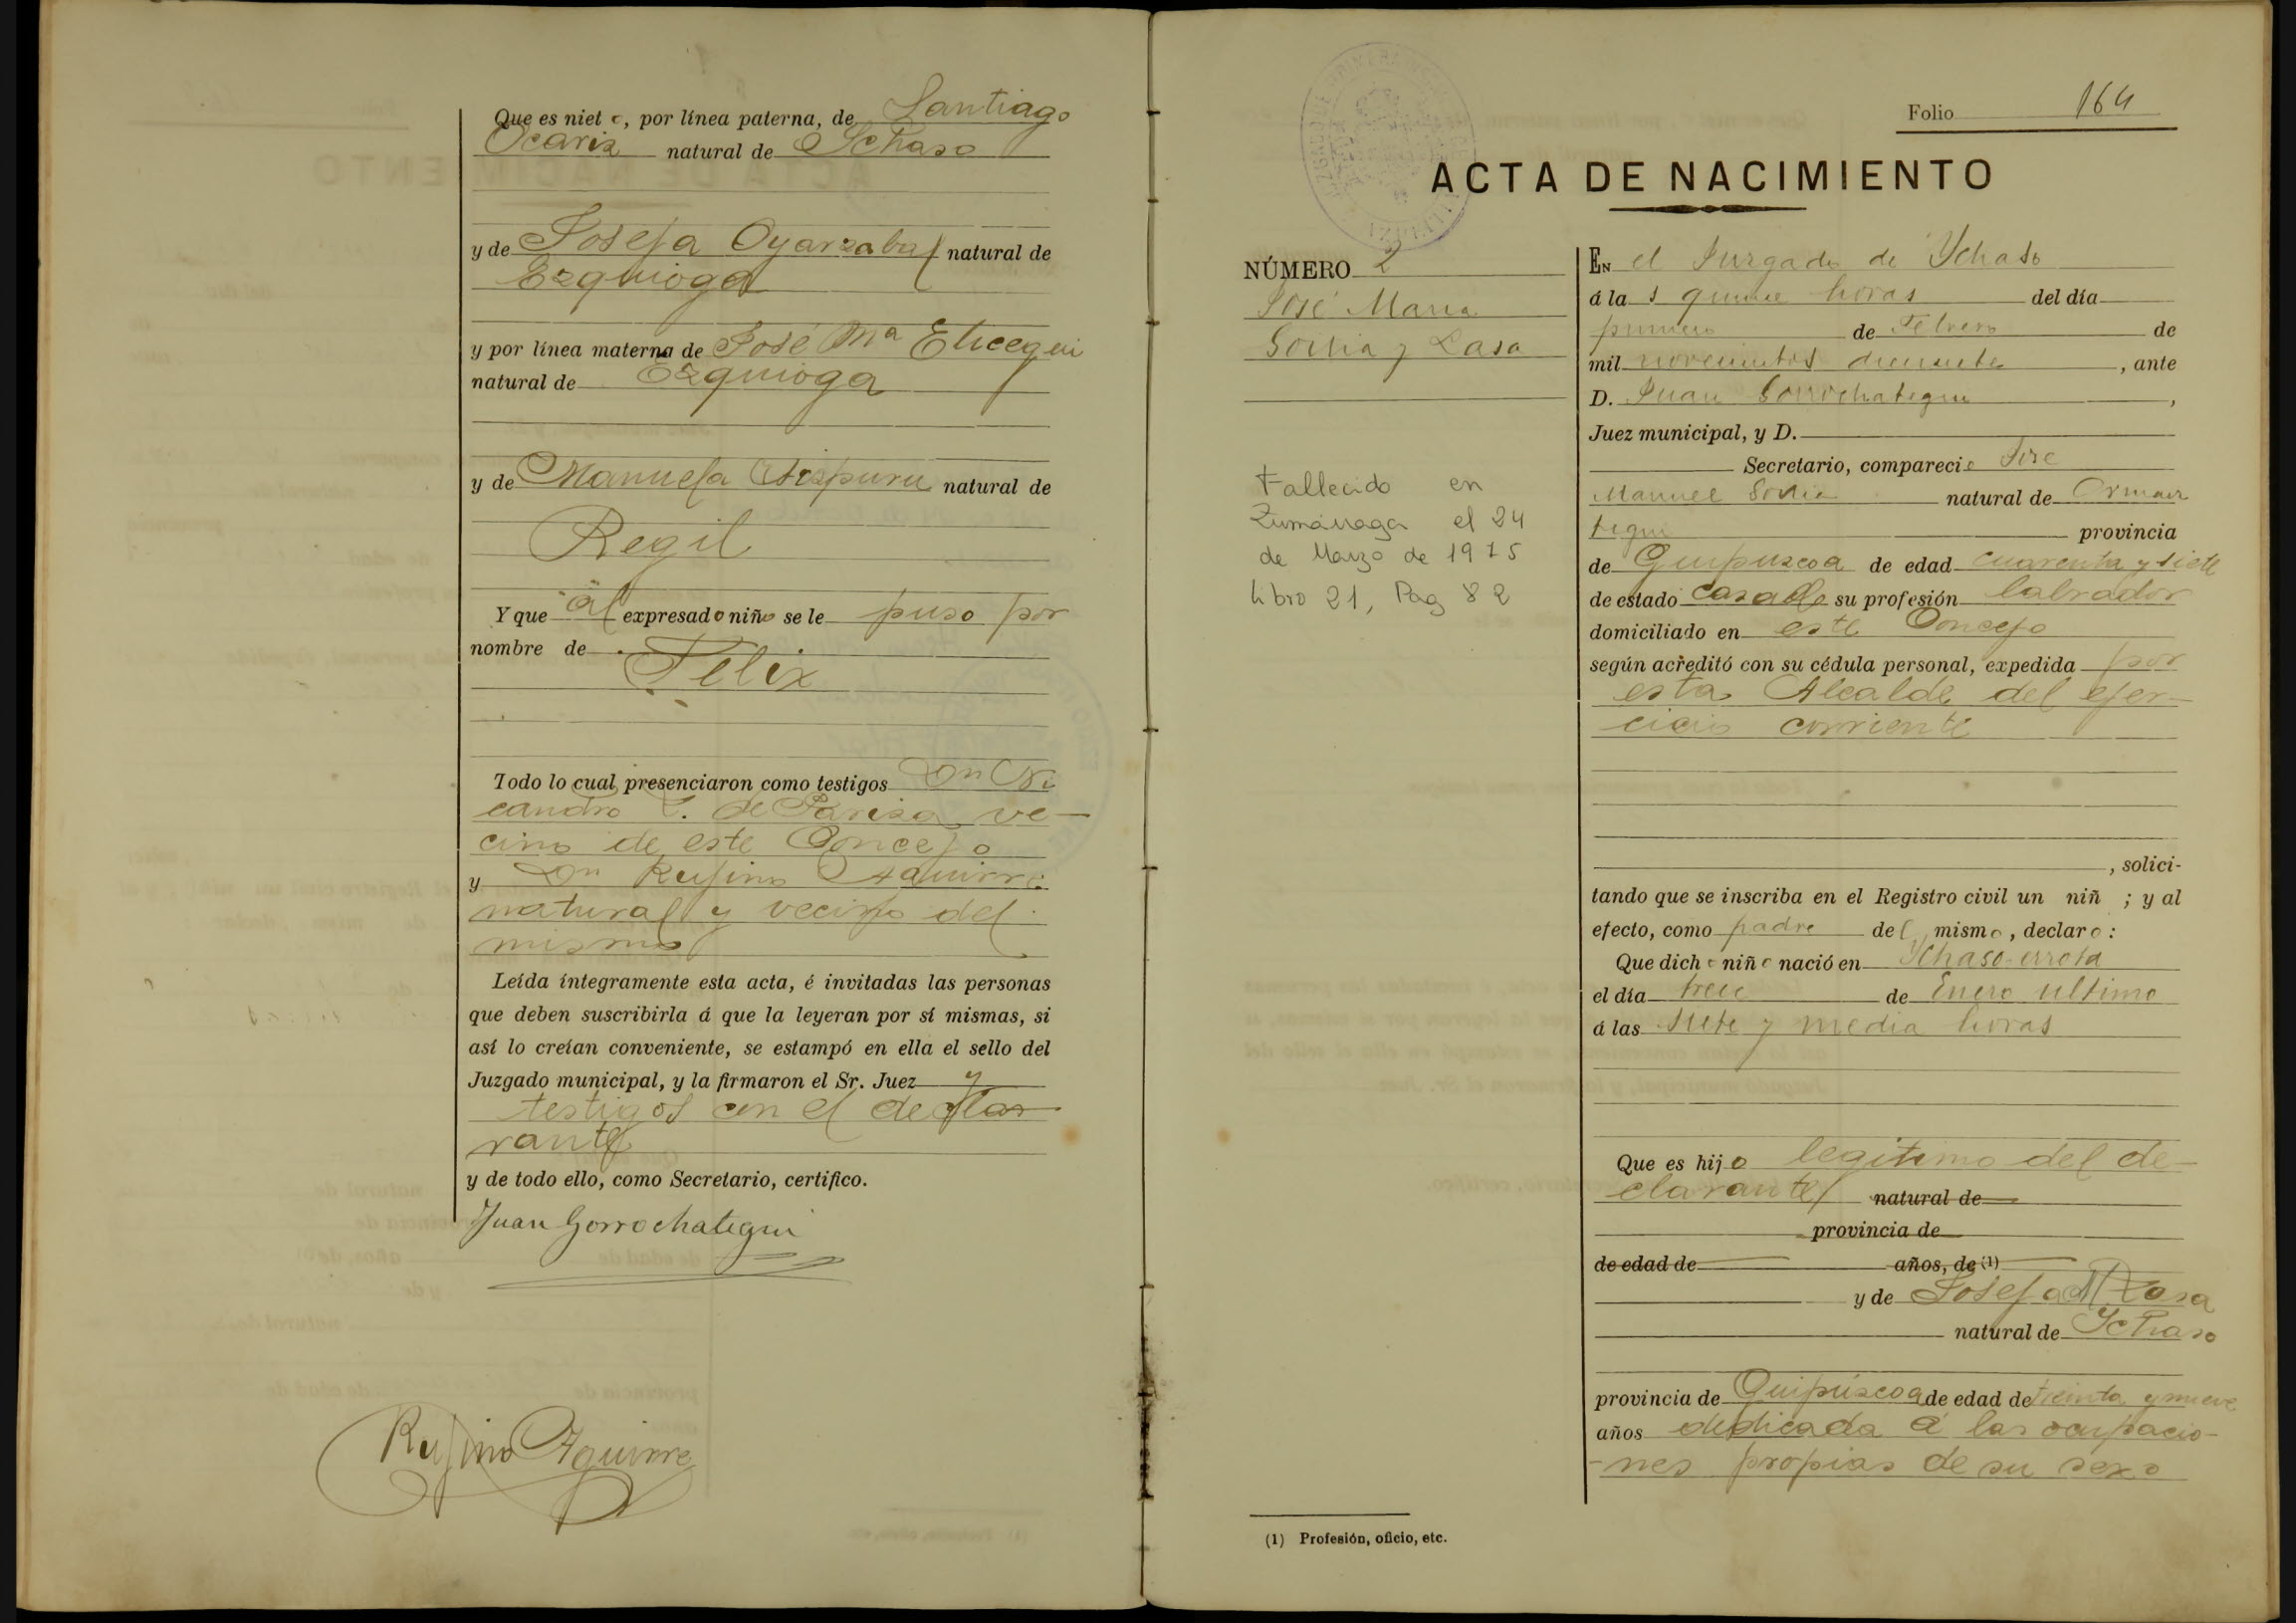 Que es nieto, por línea paterna, de Santiago
Ocariz natural de Ychaso
y de Josefa Oyarzabal natural de
Ezquioga
y por línea materna de José Mª Elicegui
natural de Ezquioga
y de Manuela Aizpuru natural de
Regil
Y que al expresado niño se le puso por
nombre de Felix
Todo lo cual presenciaron como testigos Don Ni
candro de ve-
cino de este Concejo
y Don Rufino Aguirre
natural y vecino del
mismo
Leída íntegramente esta acta, é invitadas las personas
que deben suscribirla á que la leyeran por sí mismas, si
así lo creían conveniente, se estampó en ella el sello del
Juzgado municipal, y la firmaron el Sr. Juez y
testigos con el decla-
rante
y de todo ello, como Secretario, certifico.
Juan Gorrochategui
Rufino Aguirre
Folio 164
ACTA DE NACIMIENTO
NÚMERO 2
José Maria
Gorria y Lasa
Fallecido en
Zumárraga el 24
de Marzo de 1975
libro 21, Pag 82
EN el Juzgado de Ychaso
á las quince horas del día
primero de Febrero de
mil novecientos diecisiete, ante
D. Juan Gorrochategui,
Juez municipal, y D.
Secretario, compareció José
Manuel Gorria natural de Ormaiz
tegui provincia
de Guipuzcoa de edad cuarenta y siete
de estado casado su profesión labrador
domiciliado en este Concejo
según acreditó con su cédula personal, expedida por
esta Alcalde del ejer-
cicio corriente
, solici-
tando que se inscriba en el Registro civil un niñ ; y al
efecto, como padre del mismo, declaro:
Que dicho niño nació en Ychaso-errota
el día trece de Enero ultimo
á las siete y media horas
Que es hijo legitimo del de-
clarante natural de
provincia de
de edad de años, de (1)
y de Josefa Mª Lasa
natural de Ychaso
provincia de Guipúzcoa de edad de treinta y nueve
años dedicada á las ocupacio-
-nes propias de su sexo
(1) Profesión, oficio, etc.